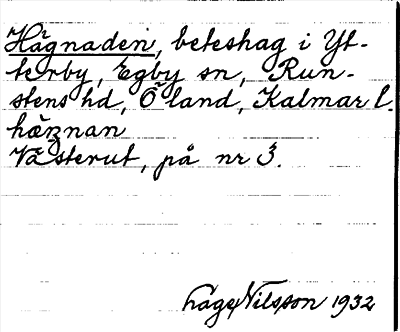 Hägnaden, beteshag i Yt-
terby, Egby sn, Run-
stens hd, Öland, Kalmar l.
hæŋnan
Västerut, på nr 3.
Nilsson 1932